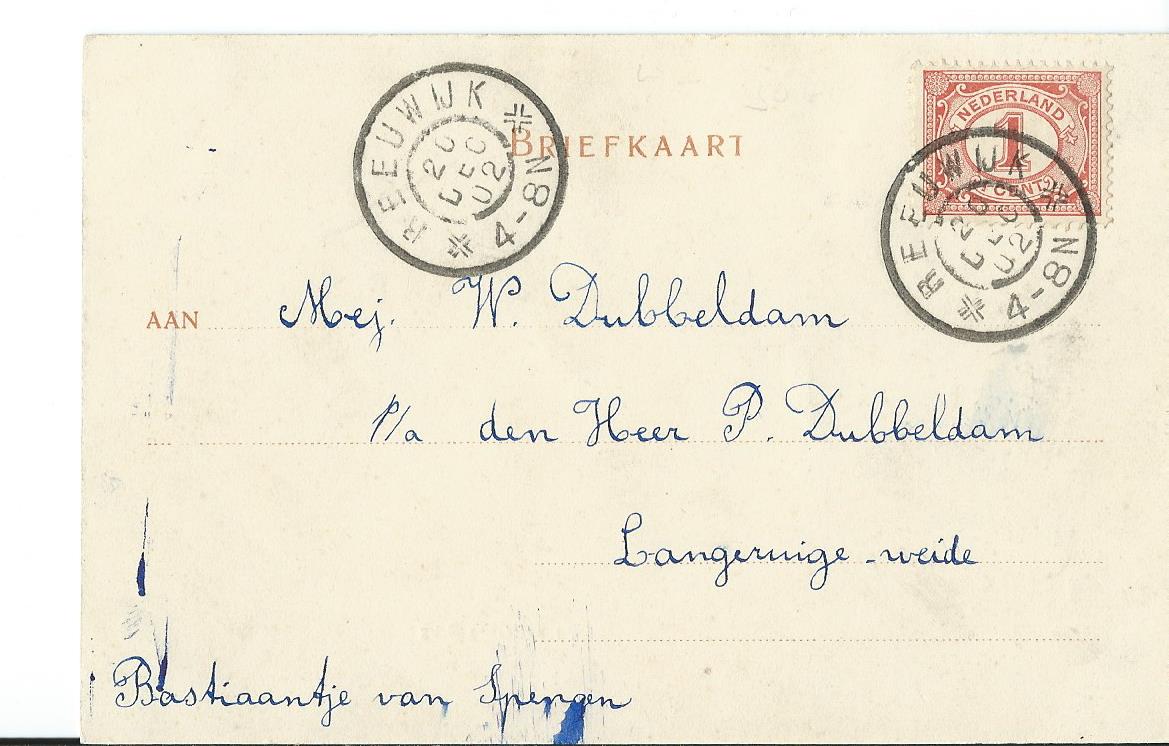 BRIEFKAART
NEDERLAND
1
CENT
REEUWIJK
20
DEC
02
4-8N
REEUWIJK
20
DEC
02
4-8N
AAN Mej. W. Dubbeldam
p/a den Heer P. Dubbeldam
Langeruige-weide
Bastiaantje van Spengen